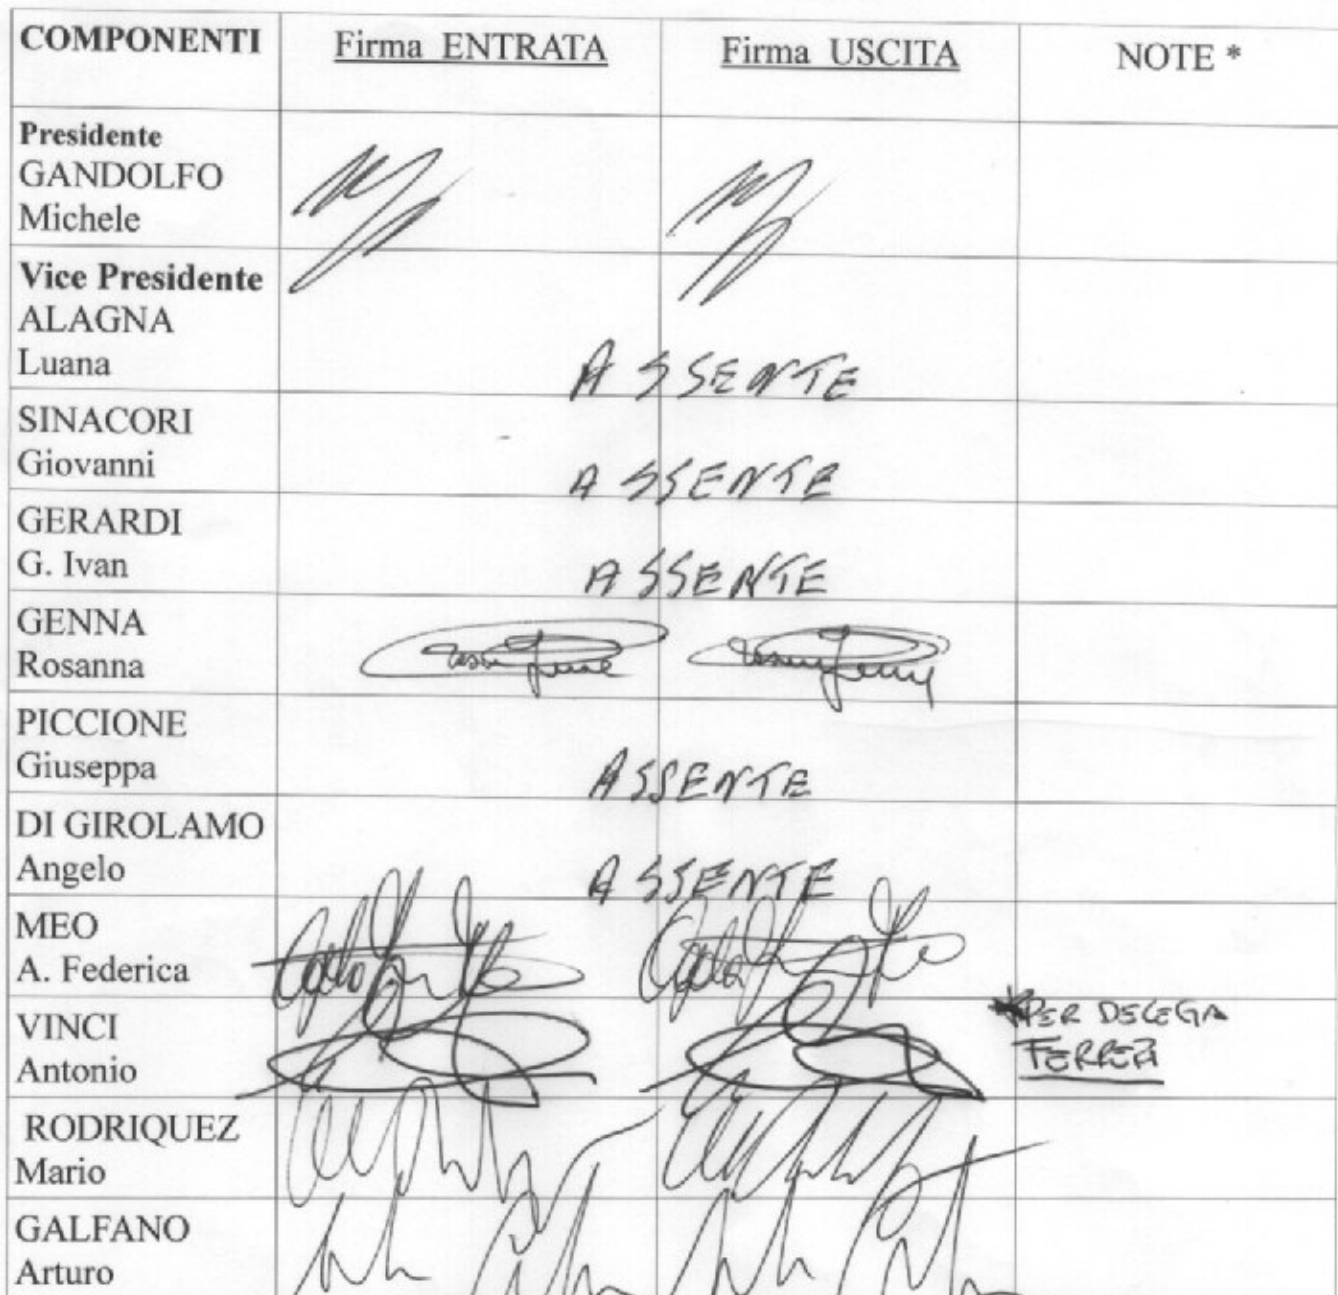 COMPONENTI Firma ENTRATA Firma USCITA NOTE *
Presidente
GANDOLFO
Michele
Vice Presidente
ALAGNA
Luana ASSENTE
SINACORI
Giovanni ASSENTE
GERARDI
G. Ivan ASSENTE
GENNA
Rosanna
PICCIONE
Giuseppa ASSENTE
DI GIROLAMO
Angelo ASSENTE
MEO
A. Federica
VINCI *PER DELEGA
Antonio FERRERI
RODRIQUEZ
Mario
GALFANO
Arturo